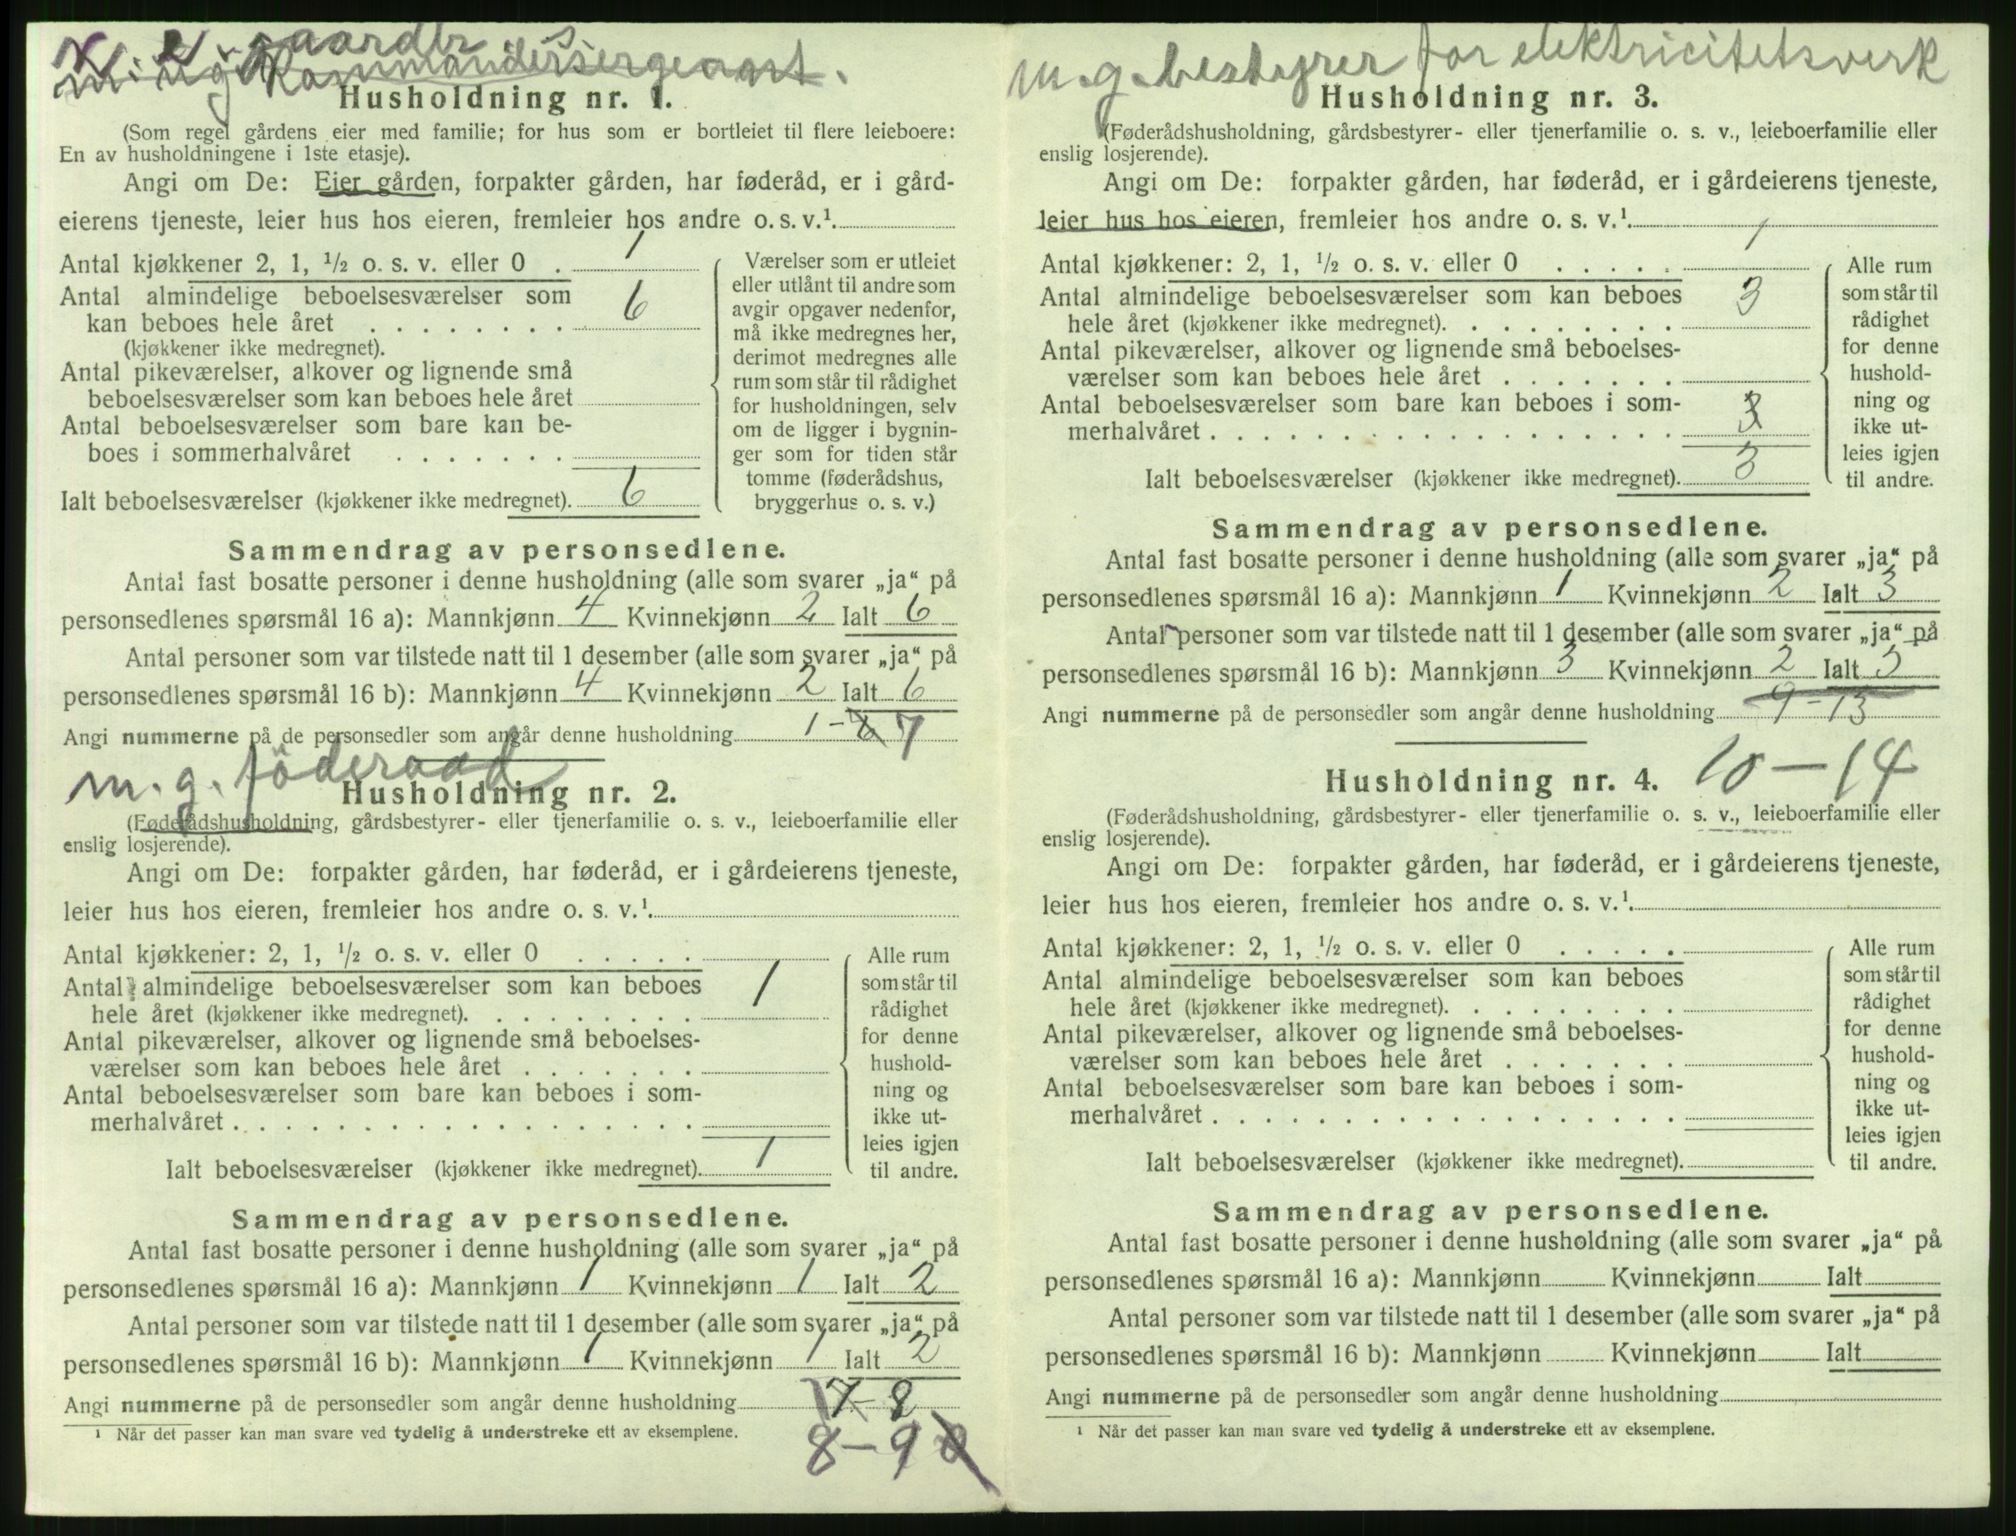 gaarder s
m. ug. Kommandersergeant.
Husholdning nr. 1.
(Som regel gårdens eier med familie; for hus som er bortleiet til flere leieboere:
En av husholdningene i 1ste etasje).
Angi om De: Eier gården, forpakter gården, har føderåd, er i gård-
eierens tjeneste, leier hus hos eieren, fremleier hos andre o. s. v.¹.
Antal kjøkkener 2, 1, ½ o. s. v. eller 0 . 1
Antal almindelige beboelsesværelser som
kan beboes hele året . . . . . . . . . 6
(kjøkkener ikke medregnet).
Antal pikeværelser, alkover og lignende små
beboelsesværelser som kan beboes hele året
Antal beboelsesværelser som bare kan be-
boes i sommerhalvåret . . . . . . .
Ialt beboelsesværelser (kjøkkener ikke medregnet). 6
Værelser som er utleiet
eller utlånt til andre som
avgir opgaver nedenfor,
må ikke medregnes her,
derimot medregnes alle
rum som står til rådighet
for husholdningen, selv
om de ligger i bygnin-
ger som for tiden står
tomme (føderådshus,
bryggerhus o. s. v.)
Sammendrag av personsedlene.
Antal fast bosatte personer i denne husholdning (alle som svarer „ja“ på
personsedlenes spørsmål 16 a): Mannkjønn 4 Kvinnekjønn 2 Ialt 6
Antal personer som var tilstede natt til 1 desember (alle som svarer „ja“ på
personsedlenes spørsmål 16 b): Mannkjønn 4 Kvinnekjønn 2 Ialt 6
Angi nummerne på de personsedler som angår denne husholdning 1 - 7
m. g. föderaad
Husholdning nr. 2.
(Føderådshusholdning, gårdsbestyrer- eller tjenerfamilie o. s. v., leieboerfamilie eller
enslig losjerende).
Angi om De: forpakter gården, har føderåd, er i gårdeierens tjeneste,
leier hus hos eieren, fremleier hos andre o. s. v.¹.
Antal kjøkkener: 2, 1, ½ o. s. v. eller 0 . . . . .
Antal almindelige beboelsesværelser som kan beboes
hele året (kjøkkener ikke medregnet). . . . . . . . . 1
Antal pikeværelser, alkover og lignende små beboelses-
værelser som kan beboes hele året . . . . . . .
Antal beboelsesværelser som bare kan beboes i som-
merhalvåret . . . . . . . . . . . . . . . . . .
Ialt beboelsesværelser (kjøkkener ikke medregnet). 1
Alle rum
som står til
rådighet
for denne
hushold-
ning og
ikke ut-
leies igjen
til andre.
Sammendrag av personsedlene.
Antal fast bosatte personer i denne husholdning (alle som svarer „ja“ på
personsedlenes spørsmål 16 a): Mannkjønn 1 Kvinnekjønn 1 Ialt 2
Antal personer som var tilstede natt til 1 desember (alle som svarer „ja“ på
personsedlenes spørsmål 16 b): Mannkjønn 1 Kvinnekjønn 1 Ialt 2
Angi nummerne på de personsedler som angår denne husholdning 7 - 8
8 - 9
¹ Når det passer kan man svare ved tydelig å understreke ett av eksemplene.
m. g. bestyrer for elektricitetsverk
Husholdning nr. 3.
(Føderådshusholdning, gårdsbestyrer- eller tjenerfamilie o. s. v., leieboerfamilie eller
enslig losjerende).
Angi om De: forpakter gården, har føderåd, er i gårdeierens tjeneste,
leier hus hos eieren, fremleier hos andre o. s. v.¹.
Antal kjøkkener: 2, 1, ½ o. s. v. eller 0 . . . . . 1
Antal almindelige beboelsesværelser som kan beboes
hele året (kjøkkener ikke medregnet). . . . . . . . . 3
Antal pikeværelser, alkover og lignende små beboelses-
værelser som kan beboes hele året . . . . . . .
Antal beboelsesværelser som bare kan beboes i som-
merhalvåret . . . . . . . . . . . . . . . . . . 3
Ialt beboelsesværelser (kjøkkener ikke medregnet). 3
Alle rum
som står til
rådighet
for denne
hushold-
ning og
ikke ut-
leies igjen
til andre.
Sammendrag av personsedlene.
Antal fast bosatte personer i denne husholdning (alle som svarer „ja“ på
personsedlenes spørsmål 16 a): Mannkjønn 1 Kvinnekjønn 2 Ialt 3
Antal personer som var tilstede natt til 1 desember (alle som svarer „ja“ på
personsedlenes spørsmål 16 b): Mannkjønn 3 Kvinnekjønn 2 Ialt 5
Angi nummerne på de personsedler som angår denne husholdning 9 - 13
10 - 14
Husholdning nr. 4.
(Føderådshusholdning, gårdsbestyrer- eller tjenerfamilie o. s. v., leieboerfamilie eller
enslig losjerende).
Angi om De: forpakter gården, har føderåd, er i gårdeierens tjeneste,
leier hus hos eieren, fremleier hos andre o. s. v.¹.
Antal kjøkkener: 2, 1, ½ o. s. v. eller 0 . . . . .
Antal almindelige beboelsesværelser som kan beboes
hele året (kjøkkener ikke medregnet). . . . . . . . .
Antal pikeværelser, alkover og lignende små beboelses-
værelser som kan beboes hele året . . . . . . .
Antal beboelsesværelser som bare kan beboes i som-
merhalvåret . . . . . . . . . . . . . . . . . .
Ialt beboelsesværelser (kjøkkener ikke medregnet).
Alle rum
som står til
rådighet
for denne
hushold-
ning og
ikke ut-
leies igjen
til andre.
Sammendrag av personsedlene.
Antal fast bosatte personer i denne husholdning (alle som svarer „ja“ på
personsedlenes spørsmål 16 a): Mannkjønn Kvinnekjønn Ialt
Antal personer som var tilstede natt til 1 desember (alle som svarer „ja“ på
personsedlenes spørsmål 16 b): Mannkjønn Kvinnekjønn Ialt
Angi nummerne på de personsedler som angår denne husholdning
¹ Når det passer kan man svare ved tydelig å understreke ett av eksemplene.